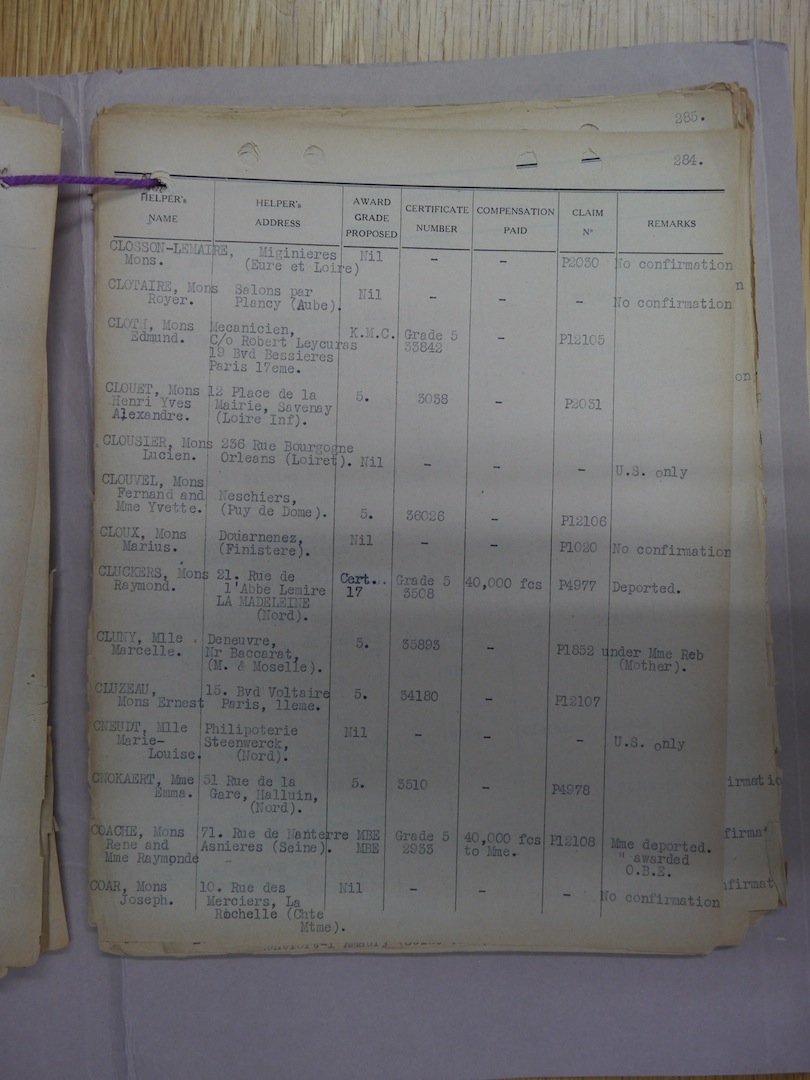 285.
284.
HELPER's NAME | HELPER's ADDRESS | AWARD GRADE PROPOSED | CERTIFICATE NUMBER | COMPENSATION PAID | CLAIM Nº | REMARKS
CLOSSON-LEMAIRE, Miginieres Nil - - P2030 No confirmation
Mons. (Eure et Loire)
CLOTAIRE, Mons Salons par Nil - - - No confirmation
Royer. Plancy (Aube).
CLOTH, Mons Mecanicien, K.M.C. Grade 5 - P12105
Edmund. C/o Robert Leycuras 33842
19 Bvd Bessieres
Paris 17eme.
CLOUET, Mons 12 Place de la 5. 3038 - P2031
Henri Yves Mairie, Savenay
Alexandre. (Loire Inf).
CLOUSIER, Mons 236 Rue Bourgogne
Lucien. Orleans (Loiret). Nil - - - U.S. only
CLOUVEL, Mons
Fernand and Neschiers,
Mme Yvette. (Puy de Dome). 5. 36026 - P12106
CLOUX, Mons Douarnenez, Nil - - P1020 No confirmation
Marius. (Finistere).
CLUCKERS, Mons 21. Rue de Cert.. Grade 5 40,000 fcs P4977 Deported.
Raymond. l'Abbe Lemire 17 3508
LA MADELEINE
(Nord).
CLUNY, Mlle Deneuvre, 5. 35893 - P1852 under Mme Reb
Marcelle. Nr Baccarat, (Mother).
(M. & Moselle).
CLUZEAU, 15. Bvd Voltaire 5. 34180 - P12107
Mons Ernest Paris, 11eme.
CNEUDT, Mlle Philipoterie Nil - - - U.S. only
Marie- Steenwerck,
Louise. (Nord).
CNOKAERT, Mme 51 Rue de la 5. 3510 - P4978
Emma. Gare, Halluin,
(Nord).
COACHE, Mons 71. Rue de Nanterre MBE Grade 5 40,000 fcs P12108 Mme deported.
Rene and Asnieres (Seine). MBE 2933 to Mme. " awarded
Mme Raymonde - O.B.E.
COAR, Mons 10. Rue des Nil - - - No confirmation
Joseph. Merciers, La
Rochelle (Chte
Mtme).